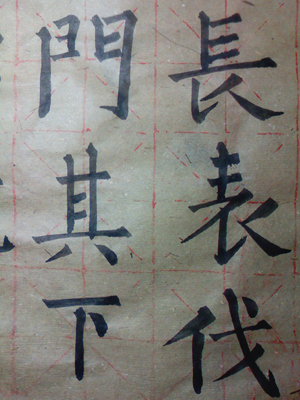 長表伐
門其下